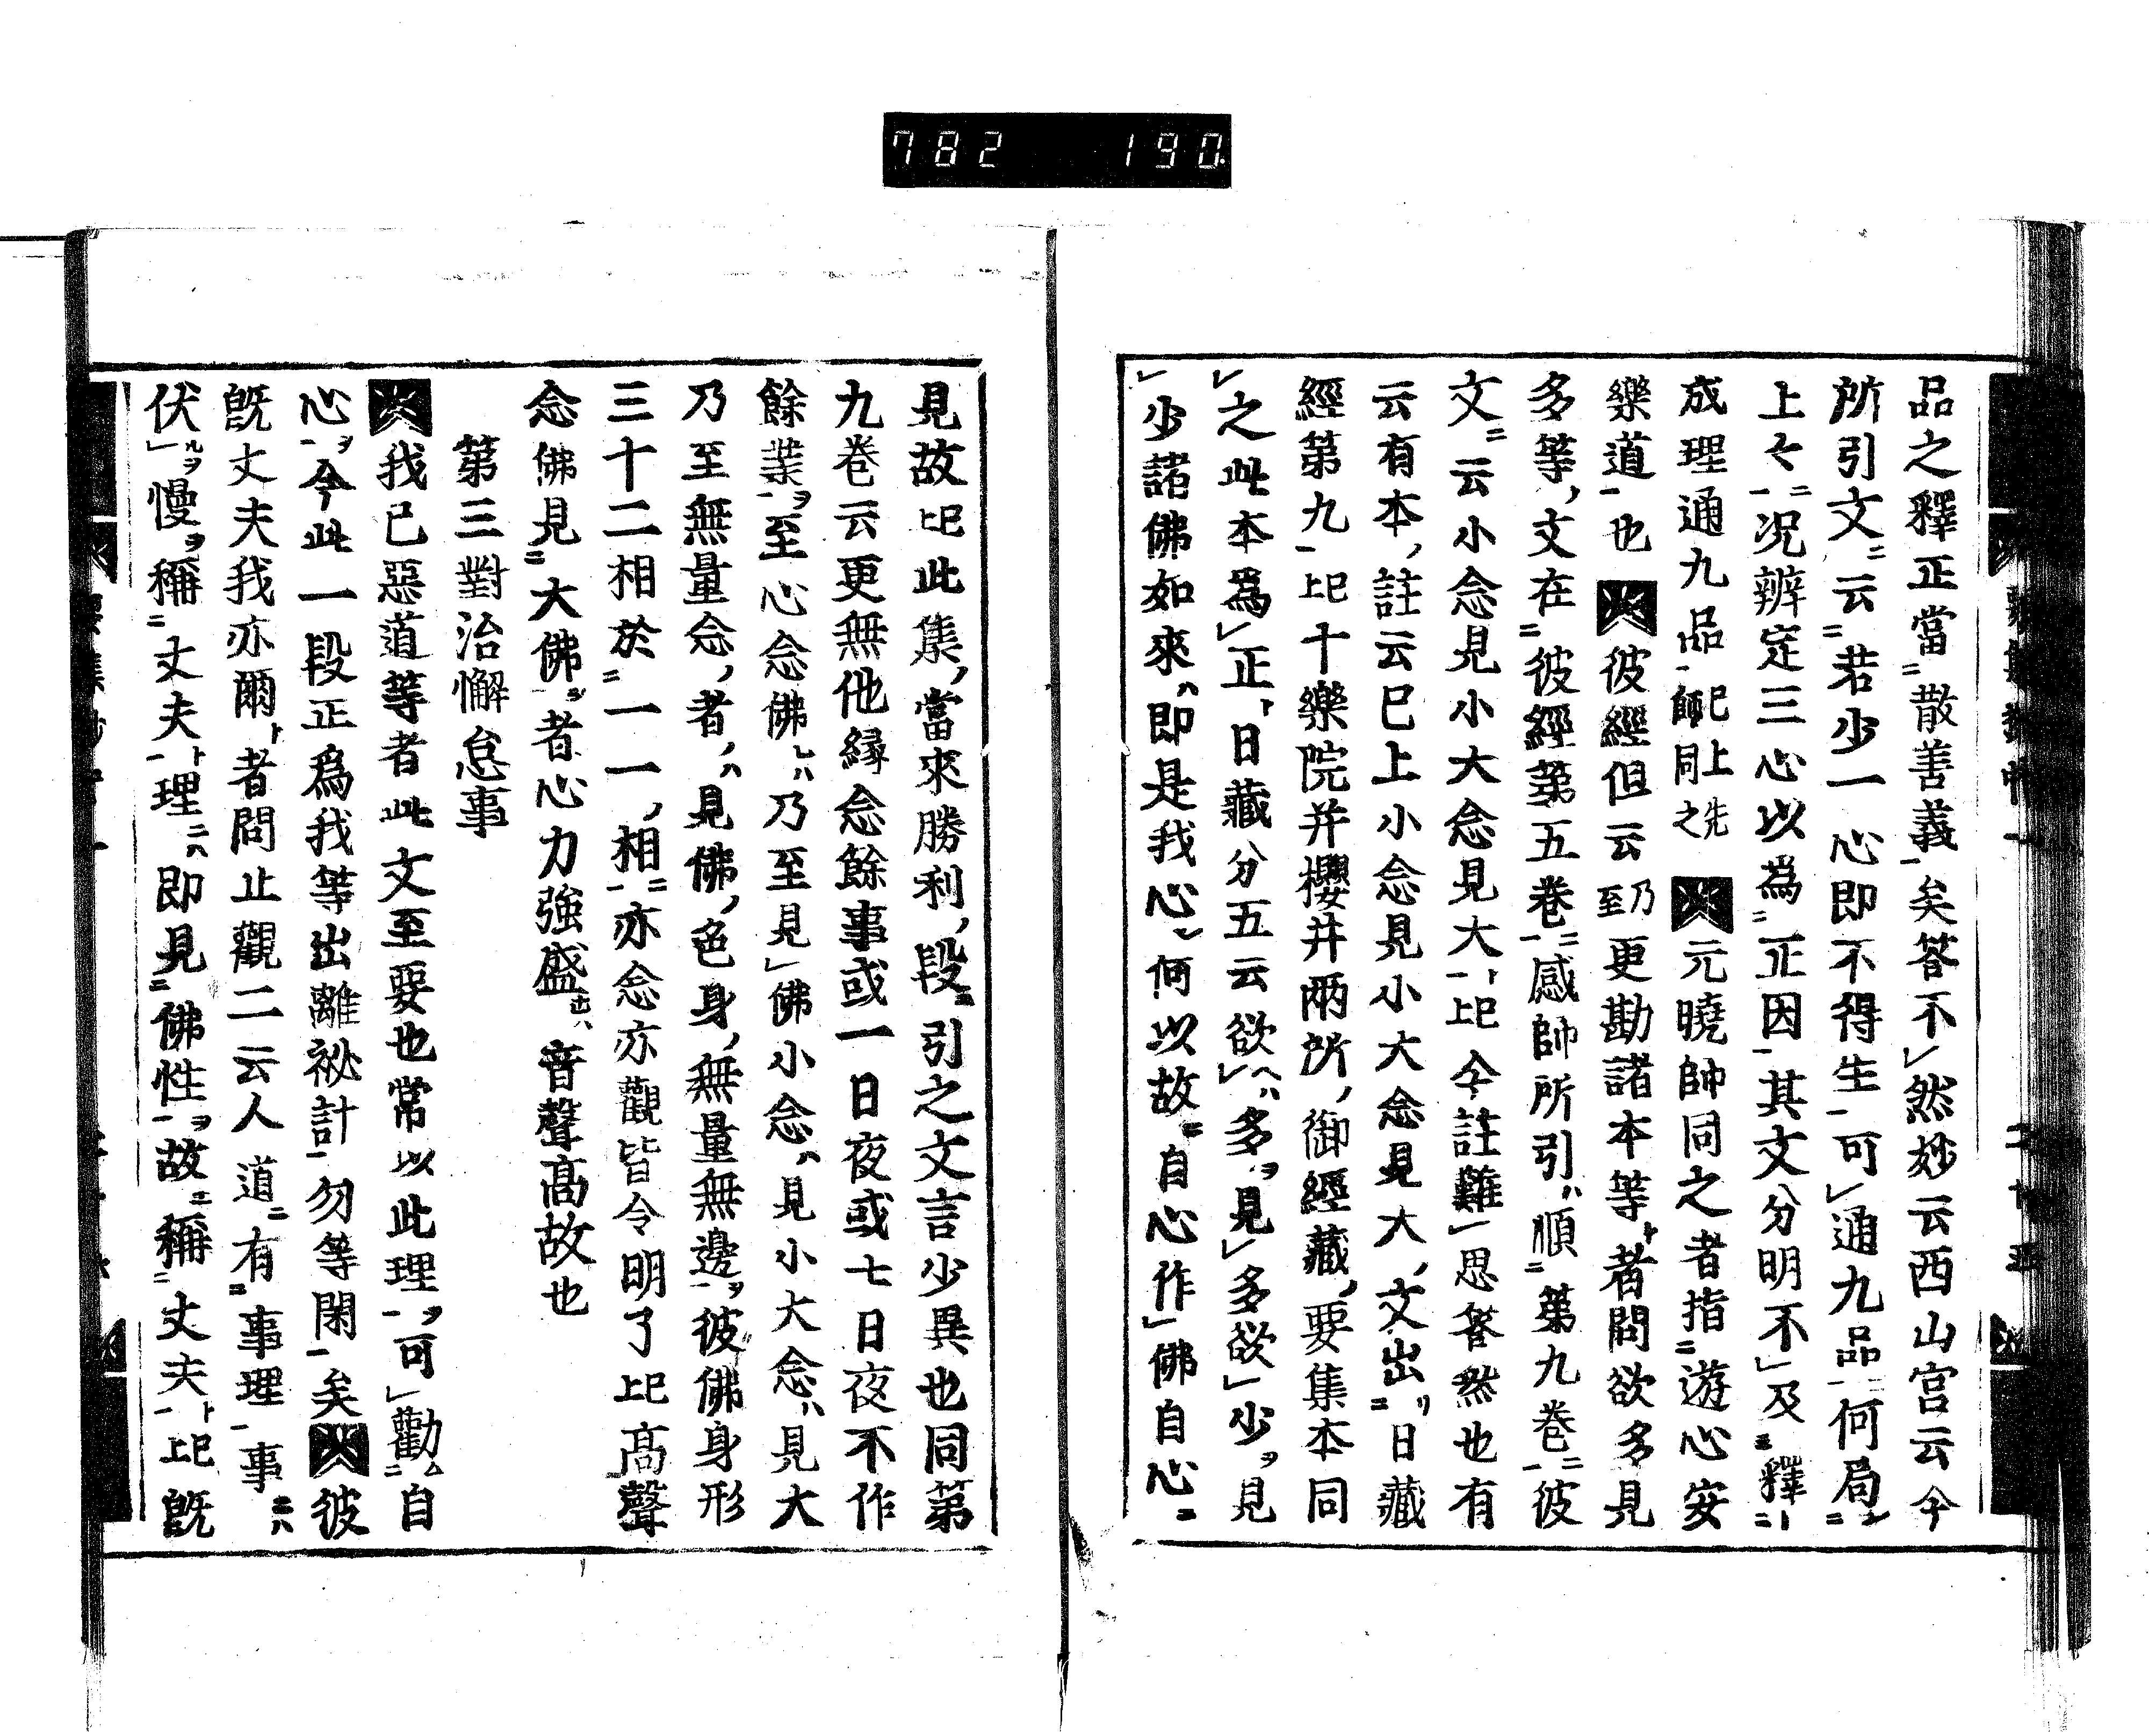 782 190
品之釋正當散善義矣答不然妙云西山宮云今
所引文云若少一心即不得生可通九品何局
上々況辨定三心以為正因其文分明不及釋
成理通九品已上先師同之元曉師同之者指遊心安
樂道也彼經但云乃至更勘諸本等者問欲多見
多等文在彼經第五卷感師所引順第九卷彼
文云小念見小大念見大已上今註難思答然也有
云有本註云已上小念見小大念見大文出日藏
經第九已上十樂院并櫻井兩所御經藏要集本同
之此本為正日藏分五云欲多見多欲少見
少諸佛如來即是我心何以故自心作佛自心
見故已上此集當來勝利段引之文言少異也同第
九卷云更無他緣念餘事或一日夜或七日夜不作
餘業至心念佛乃至見佛小念見小大念見大
乃至無量念者見佛色身無量無邊彼佛身形
三十二相於一一相亦念亦觀皆令明了已上高聲
念佛見大佛者心力強盛音聲高故也
第三對治懈怠事
我已惡道等者此文至要也常以此理可勸自
心今此一段正為我等出離祕計勿等閑矣彼
既丈夫我亦爾者問止觀二云人道有事理事
伏慢稱丈夫理即見佛性故稱丈夫已上既